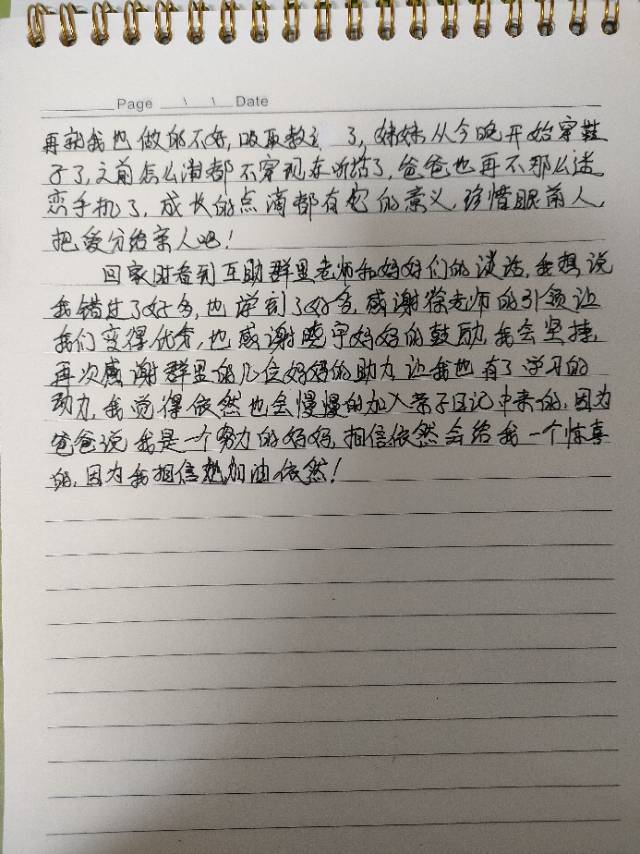 Page \ \ Date
再就我也做的不好,吸取教 了,妹妹从今晚开始穿鞋
子了,之前怎么说都不穿现在听话了,爸爸也再不那么迷
恋手机了,成长的点滴都有它的意义,珍惜眼前人,
把爱分给亲人吧!
回家时看到互助群里老师和妈妈们的谈话,我想说
我错过了好多,也学到了好多,感谢徐老师的引领让
我们变得优秀,也感谢晓宇妈妈的鼓励,我会坚持,
再次感谢群里的几位妈妈的助力,让我也有了学习的
动力,我觉得依然也会慢慢的加入亲子日记中来的,因为
爸爸说我是一个努力的妈妈,相信依然会给我一个惊喜
的,因为我相信 加油依然!